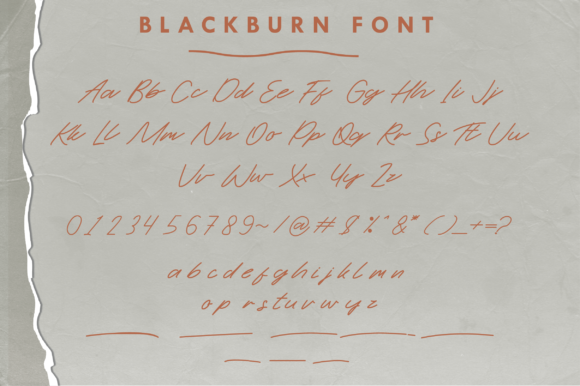 BLACKBURN FONT
Aa Bb Cc Dd Ee Ff Gg Hh Ii Jj
Kk Ll Mm Nn Oo Pp Qq Rr Ss Tt Uu
Vv Ww Xx Yy Zz
0123456789~/@#$%^&*()_+=?
abcdefghijklmn
op rstuvwyz